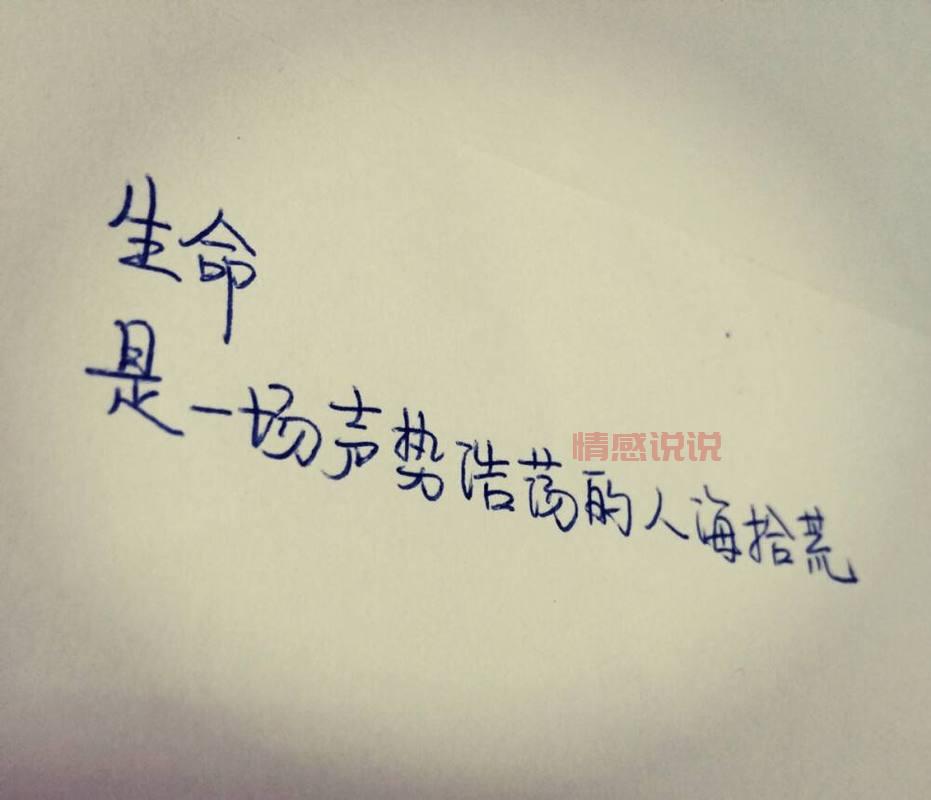 生命
是一场声势浩荡的人海拾荒
情感说说